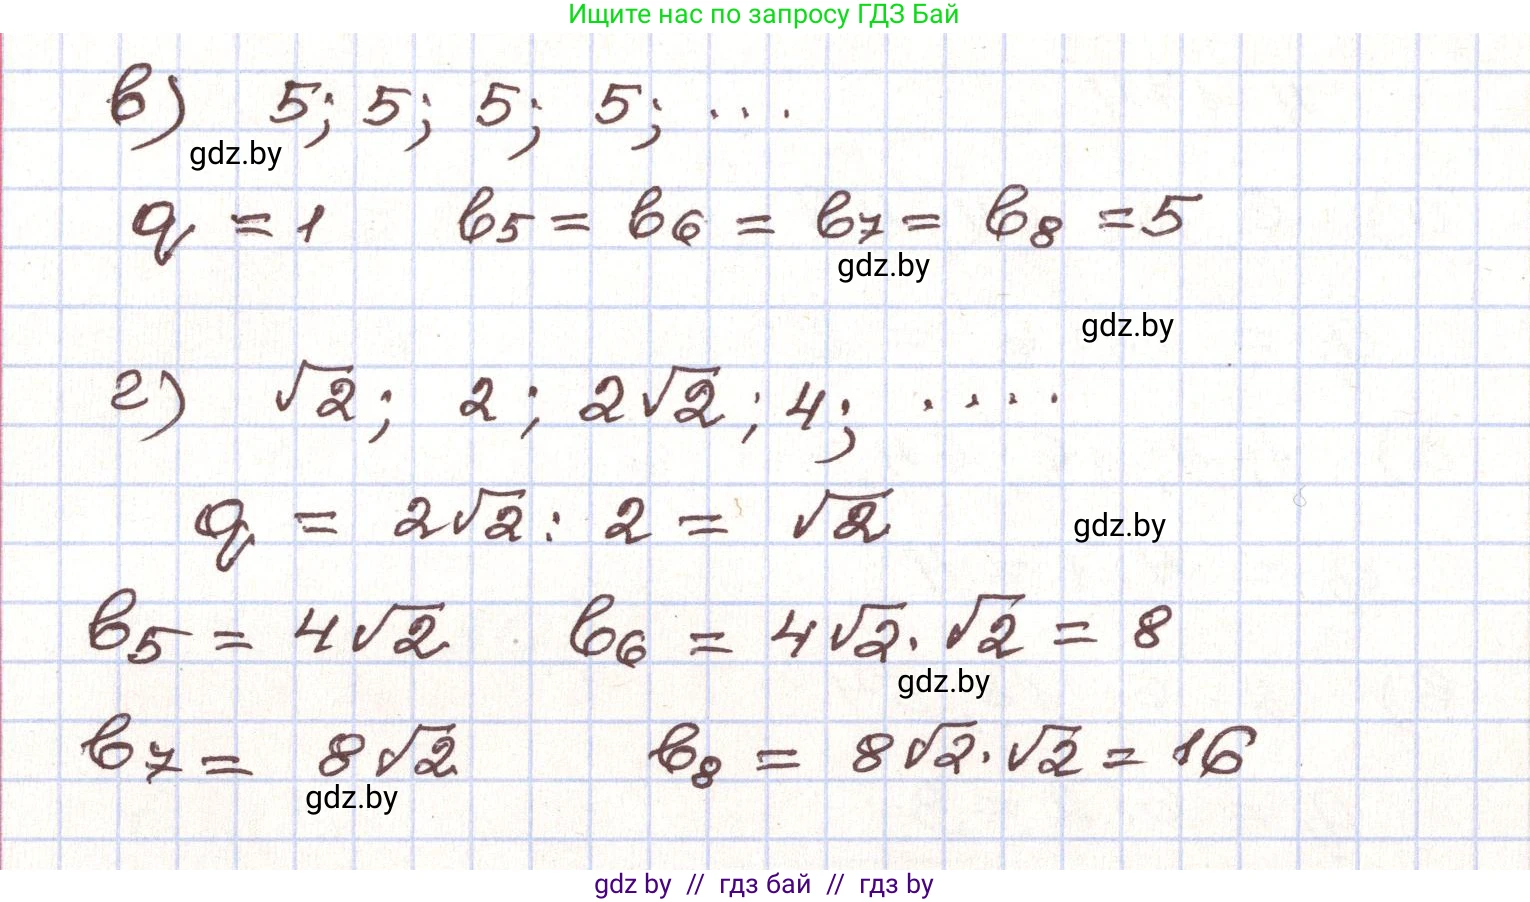 Ищите нас по запросу ГДЗ Бай
в) 5; 5; 5; 5; ...
gdz.by
q = 1 b₅ = b₆ = b₇ = b₈ = 5
gdz.by
gdz.by
г) √2; 2; 2√2; 4; ....
q = 2√2 : 2 = √2
gdz.by
b₅ = 4√2 b₆ = 4√2 · √2 = 8
gdz.by
b₇ = 8√2 b₈ = 8√2 · √2 = 16
gdz.by
gdz by // гдз бай // гдз by